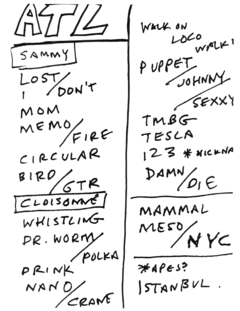 ATL
SAMMY
LOST/
I DON'T
MOM
MEMO/
FIRE
CIRCULAR
BIRD/
GTR
CLOISONNÉ
WHISTLING
DR. WORM/
POLKA
DRINK
NANO/
CRANE
WALK ON
LOCO
WALK!
PUPPET/
JOHNNY/
SEXXY
TMBG
TESLA
123 *NICKNA
DAMN/
DIE
MAMMAL
MESO/
NYC
*APES?
ISTANBUL.